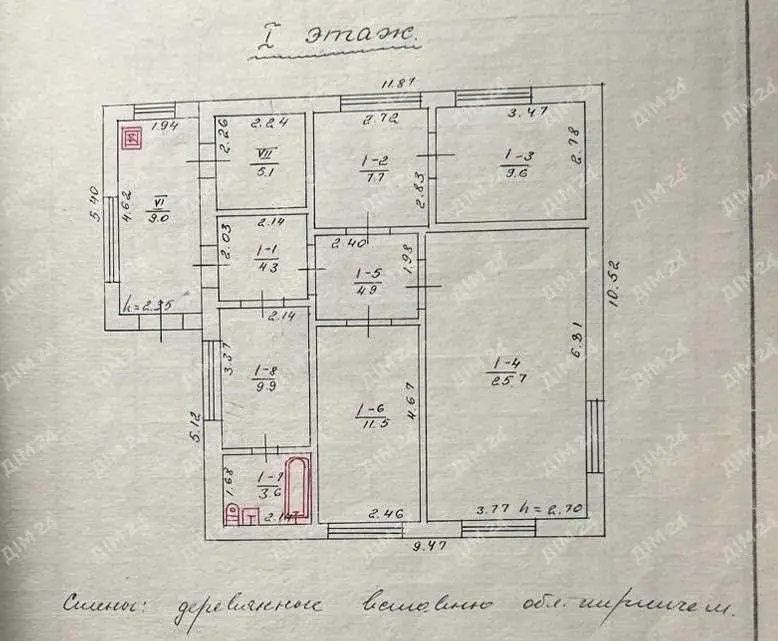 I этаж.
11.87
1.94
2.26
2.24
2.72
3.47
2.78
VII
5.1
1-2
7.7
1-3
9.6
5.40
4.62
VI
9.0
2.83
2.03
2.14
1-1
4.3
2.40
1-5
4.9
1.98
10.52
h=2.35
2.14
3.37
1-8
9.9
1-4
25.7
6.81
5.12
1-6
11.5
4.67
1.68
1-7
3.6
2.14
2.46
3.77 h=2.70
9.47
Стены: деревянные вставкою обл. кирпичем.
ДІМ-24